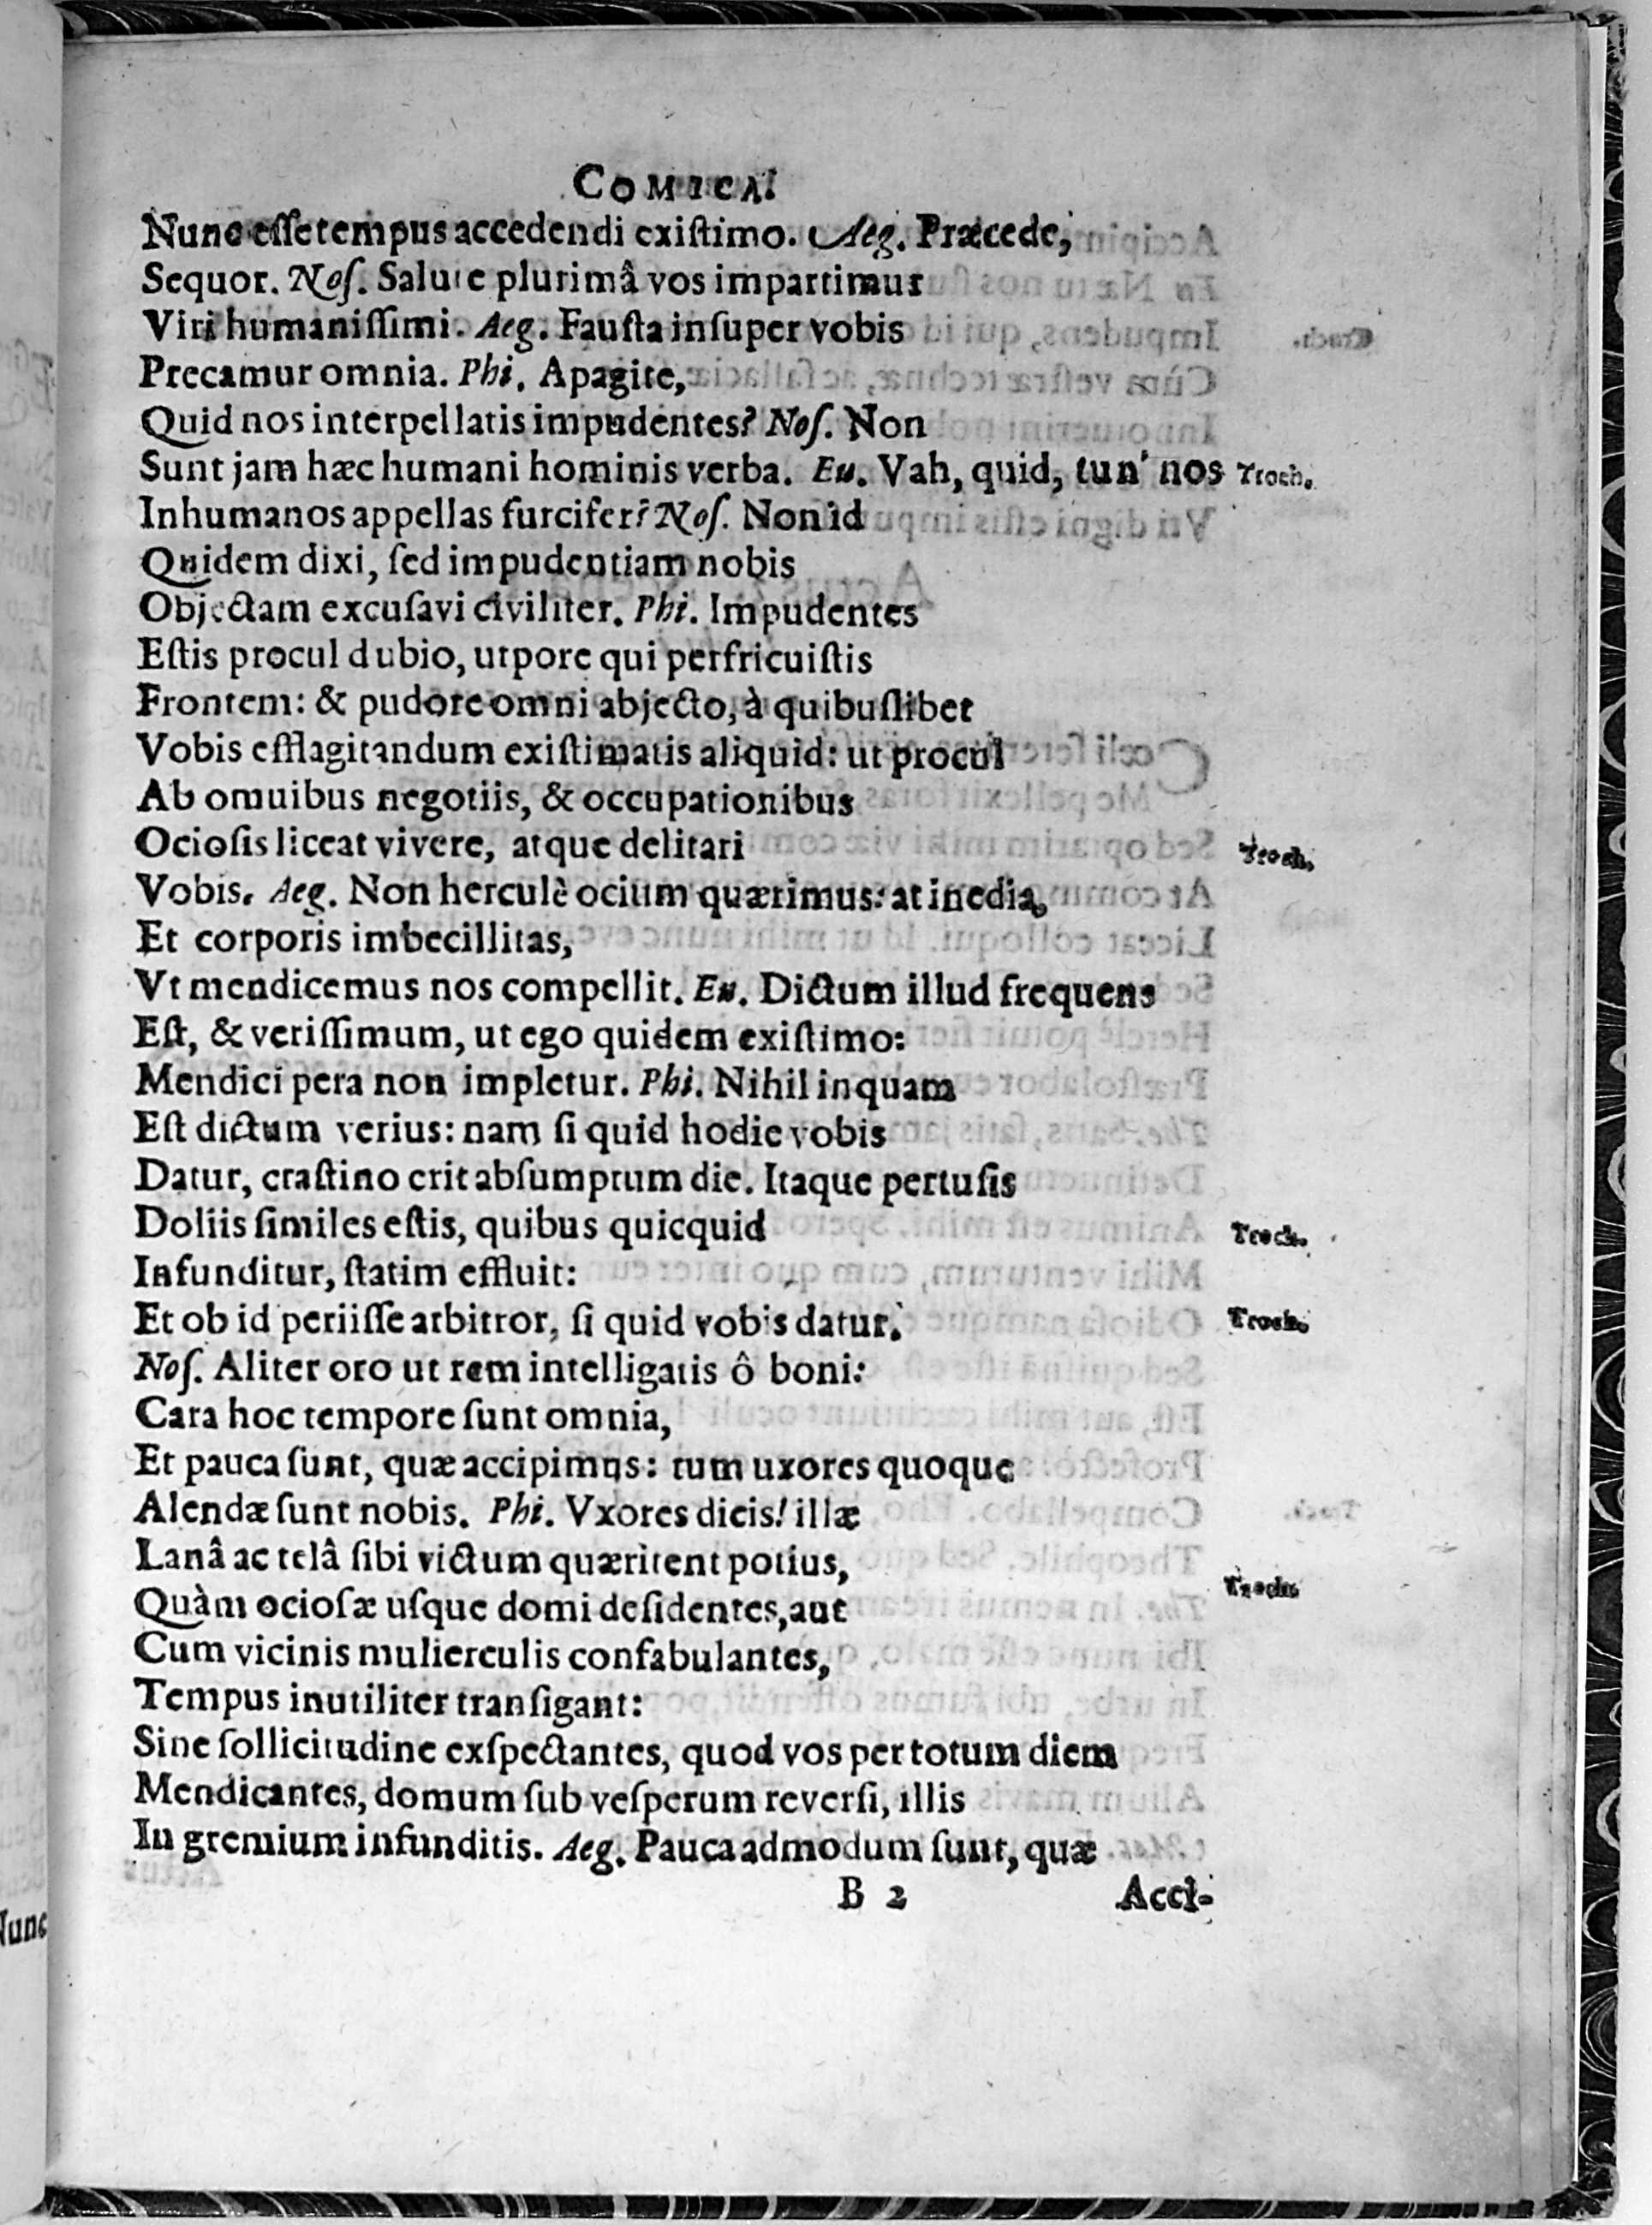 COMICA.
Nunc eſſe tempus accedendi exiſtimo. Aeg. Præcede,
Sequor. Noſ. Salute plurimâ vos impartimur
Viri humaniſſimi. Aeg. Fauſta inſuper vobis
Precamur omnia. Phi. Apagite,
Quid nos interpellatis impudentes? Noſ. Non
Sunt jam hæc humani hominis verba. Eu. Vah, quid, tun' nos Troch.
Inhumanos appellas furcifer? Noſ. Non id
Quidem dixi, ſed impudentiam nobis
Objectam excuſavi civiliter. Phi. Impudentes
Eſtis procul dubio, utpore qui perfricuiſtis
Frontem: & pudore omni abjecto, à quibuſlibet
Vobis efflagitandum exiſtimatis aliquid: ut procul
Ab omuibus negotiis, & occupationibus
Ocioſis liceat vivere, atque delitari Troch.
Vobis. Aeg. Non herculè ocium quærimus: at inedia,
Et corporis imbecillitas,
Vt mendicemus nos compellit. Eu. Dictum illud frequens
Eſt, & veriſſimum, ut ego quidem exiſtimo:
Mendici pera non impletur. Phi. Nihil inquam
Eſt dictum verius: nam ſi quid hodie vobis
Datur, craſtino erit abſumptum die. Itaque pertuſis
Doliis ſimiles eſtis, quibus quicquid Troch.
Infunditur, ſtatim effluit:
Et ob id periiſſe arbitror, ſi quid vobis datur. Troch.
Noſ. Aliter oro ut rem intelligatis ô boni:
Cara hoc tempore ſunt omnia,
Et pauca ſunt, quæ accipimus: tum uxores quoque
Alendæ ſunt nobis. Phi. Vxores dicis! illæ
Lanâ ac telâ ſibi victum quæritent potius,
Quàm ocioſæ uſque domi deſidentes, aut Troch.
Cum vicinis mulierculis confabulantes,
Tempus inutiliter tranſigant:
Sine ſollicitudine exſpectantes, quod vos per totum diem
Mendicantes, domum ſub veſperum reverſi, illis
In gremium infunditis. Aeg. Pauca admodum ſunt, quæ
B 2 Acci-
Nunc